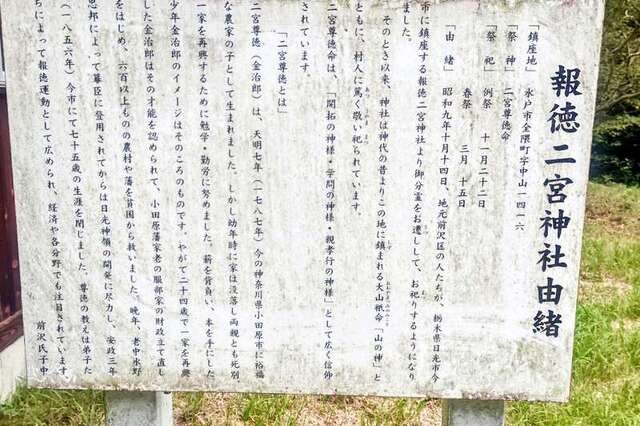 報徳二宮神社由緒
「鎮座地」　水戸市金隈町字中山一四一六
「祭　神」　二宮尊徳命
「祭　祀」　例祭　十一月二十二日
春祭　三月　十五日
「由　緒」　昭和九年十月十四日、地元前沢区の人たちが、栃木県日光市今
市に鎮座する報徳二宮神社より御分霊をお遷しして、お祀りするようになり
ました。
そのとき以来、神社は神代の昔よりこの地に鎮まれる大山祇命「山の神」と
ともに、村人に篤く敬い祀られています。
二宮尊徳命は、「開拓の神様・学問の神様・親孝行の神様」として広く信仰
されています。
「二宮尊徳とは」
二宮尊徳（金治郎）は、天明七年（一七八七年）今の神奈川県小田原市に裕福
な農家の子として生まれました。しかし幼年時に家は没落し両親とも死別
一家を再興するために勉学・勤労に努めました。薪を背負い、本を手にした
少年金治郎のイメージはそのころのものです。やがて二十四歳で一家を再興
した金治郎はその才能を認められて、小田原藩家老の服部家の財政立て直し
をはじめ、六百以上ものの農村や藩を貧困から救いました。晩年、老中水野
忠邦によって幕臣に登用されてからは日光神領の開発に尽力し、安政三年
（一八五六年）今市にて七十五歳の生涯を閉じました。尊徳の教えは弟子た
ちによって報徳運動として広められ、経済や各分野でも注目されています。
前沢氏子中